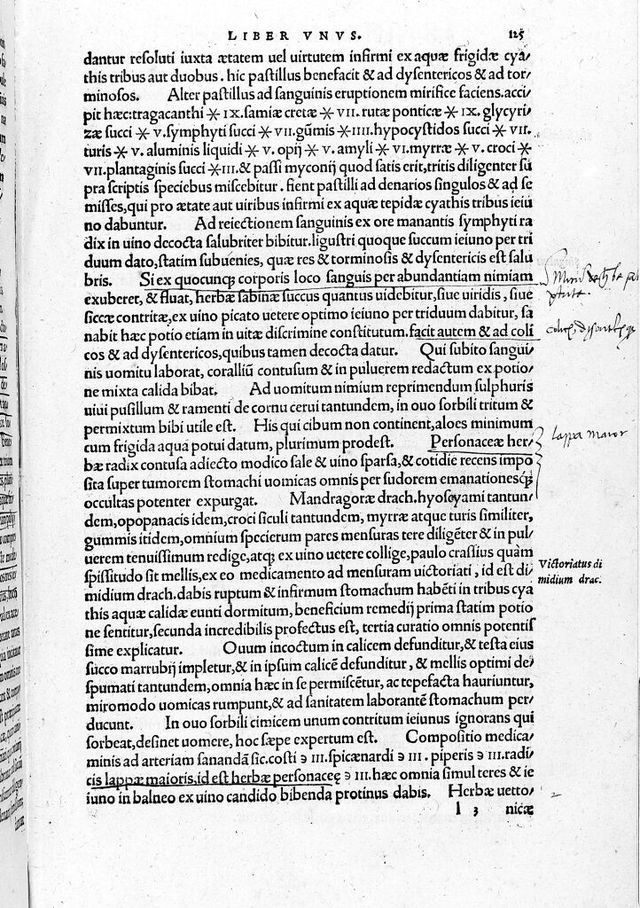 LIBER VNVS. 125
dantur resoluti iuxta ætatem uel uirtutem infirmi ex aquæ frigidæ cya/
this tribus aut duobus. hic pastillus benefacit & ad dysentericos & ad tor/
minosos. Alter pastillus ad sanguinis eruptionem mirifice faciens. acci/
pit hæc: tragacanthi ⚹ IX. samiæ cretæ ⚹ VII. rutæ ponticæ ⚹ IX. glycyri/
zæ succi ⚹ V. symphyti succi ⚹ VII. gũmis ⚹ IIII. hypocystidos succi ⚹ VII.
turis ⚹ V. aluminis liquidi ⚹ V. opij ⚹ V. amyli ⚹ VI. myrræ ⚹ V. croci ⚹
VII. plantaginis succi ⚹ III. & passi myconij quod satis erit, tritis diligenter su
pra scriptis speciebus miscebitur. fient pastilli ad denarios singulos & ad se
misses, qui pro ætate aut uiribus infirmi ex aquæ tepidæ cyathis tribus ieiu
no dabuntur. Ad reiectionem sanguinis ex ore manantis symphyti ra
dix in uino decocta salubriter bibitur. ligustri quoque succum ieiuno per tri
duum dato, statim subuenies, quæ res & torminosis & dysentericis est salu
bris. Si ex quocunq; corporis loco sanguis per abundantiam nimiam
exuberet, & fluat, herbæ sabinæ succus quantus uidebitur, siue uiridis, siue
siccæ contritæ, ex uino picato uetere optimo ieiuno per triduum dabitur, sa
nabit hæc potio etiam in uitæ discrimine constitutum. facit autem & ad coli
cos & ad dysentericos, quibus tamen decocta datur. Qui subito sangui/
nis uomitu laborat, coralliũ contusum & in puluerem redactum ex potio/
ne mixta calida bibat. Ad uomitum nimium reprimendum sulphuris
uiui pusillum & ramenti de cornu cerui tantundem, in ouo sorbili tritum &
permixtum bibi utile est. His qui cibum non continent, aloes minimum
cum frigida aqua potui datum, plurimum prodest. Personaceæ her/
bæ radix contusa adiecto modico sale & uino sparsa, & cotidie recens impo
sita super tumorem stomachi uomicas omnis per sudorem emanationesq;
occultas potenter expurgat. Mandragoræ drach. hyoscyami tantun/
dem, opopanacis idem, croci siculi tantundem, myrræ atque turis similiter,
gummis itidem, omnium specierum pares mensuras tere diligẽter & in pul/
uerem tenuissimum redige, atq; ex uino uetere collige, paulo crassius quàm
spissitudo sit mellis, ex eo medicamento ad mensuram uictoriati, id est di/
midium drach. dabis ruptum & infirmum stomachum habẽti in tribus cya
this aquæ calidæ eunti dormitum, beneficium remedij prima statim potio
ne sentitur, secunda incredibilis profectus est, tertia curatio omnis potentis
sime explicatur. Ouum incoctum in calicem defunditur, & testa eius
succo marrubij impletur, & in ipsum calicẽ defunditur, & mellis optimi de/
spumati tantundem, omnia hæc in se permiscẽtur, ac tepefacta hauriuntur,
miromodo uomicas rumpunt, & ad sanitatem laborantẽ stomachum per/
ducunt. In ouo sorbili cimicem unum contritum ieiunus ignorans qui
sorbeat, desinet uomere, hoc sæpe expertum est. Compositio medica/
minis ad arteriam sanandã sic. costi ϶ III. spicænardi ϶ III. piperis ϶ III. radi/
cis lappæ maioris, id est herbæ personaceę ϶ III. hæc omnia simul teres & ie
iuno in balneo ex uino candido bibenda protinus dabis. Herbæ uetto/
l 3 nicæ
lappa maior
Victoriatus di
midium drac.